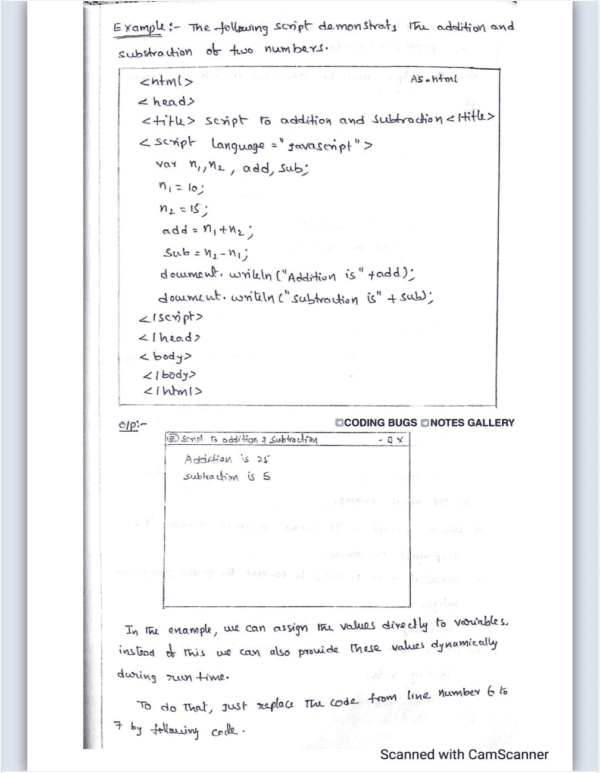 Example:- The following script demonstrats The addition and
substraction of two numbers.
AS.html
<html>
<head>
<title> script to addition and subtraction </title>
<script language="javascript">
var n1, n2, add, sub;
n1 = 10;
n2 = 15;
add = n1+n2;
sub = n2-n1;
document.writeln("Addition is" +add);
document.writeln("subtraction is" + sub);
</script>
</head>
<body>
</body>
</html>
O/P:-
CODING BUGS NOTES GALLERY
Script to addition & subtraction - X
Addition is 25
subtraction is 5
In the example, we can assign the values directly to variables.
instead of this we can also provide these values dynamically
during run time.
To do that, just replace the code from line number 6 to
7 by following code.
Scanned with CamScanner